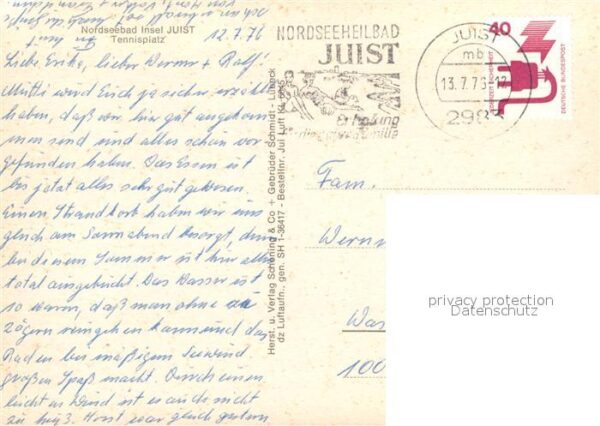 Nordseebad Insel JUIST
Tennisplatz
12.7.76
Liebe Erika, lieber Werner + Ralf!
Mutti wird Euch ja sicher erzählt
haben, daß wir hier gut angekom-
men sind und alles schön vor-
gefunden haben. Das Essen ist
bis jetzt alles sehr gut gewesen.
Einen Strandkorb haben wir uns
gleich am Sonnabend besorgt, denn
in diesem Sommer ist hier alles
total ausgebucht. Das Wasser ist
so warm, daß man ohne zu
zögern reingehen kann und das
Baden bei mäßigem Seewind
großen Spaß macht. Durch einen
leichten Wind ist es auch nicht
zu heiß. Horst war gleich gestern
Herst. u. Verlag Schöning & Co + Gebrüder Schmidt · Lübeck
dz Luftaufn., gen. SH 1-36417 - Bestellnr. Jui Luft
NORDSEEHEILBAD
JUIST
Erholung
JUIST
mb
13.7.76-12
2983
40
DEUTSCHE BUNDESPOST
Fam.
Wern
Was
100
privacy protection
Datenschutz